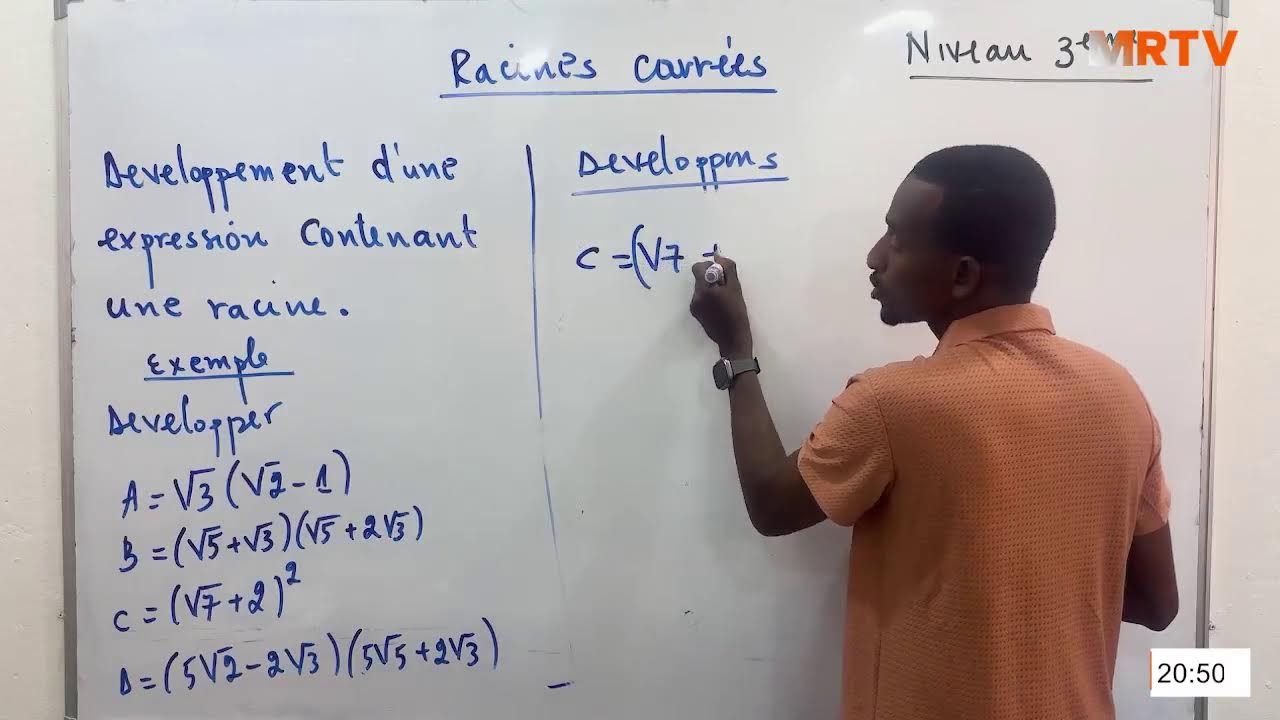 Racines carrées
Niveau 3eme
MRTV
Developpement d'une
expression contenant
une racine.
Exemple
Developper
A = √3 (√2 - 1)
B = (√5 + √3)(√5 + 2√3)
C = (√7 + 2)²
D = (5√2 - 2√3)(5√5 + 2√3)
Developpons
C = (√7 +
20:50